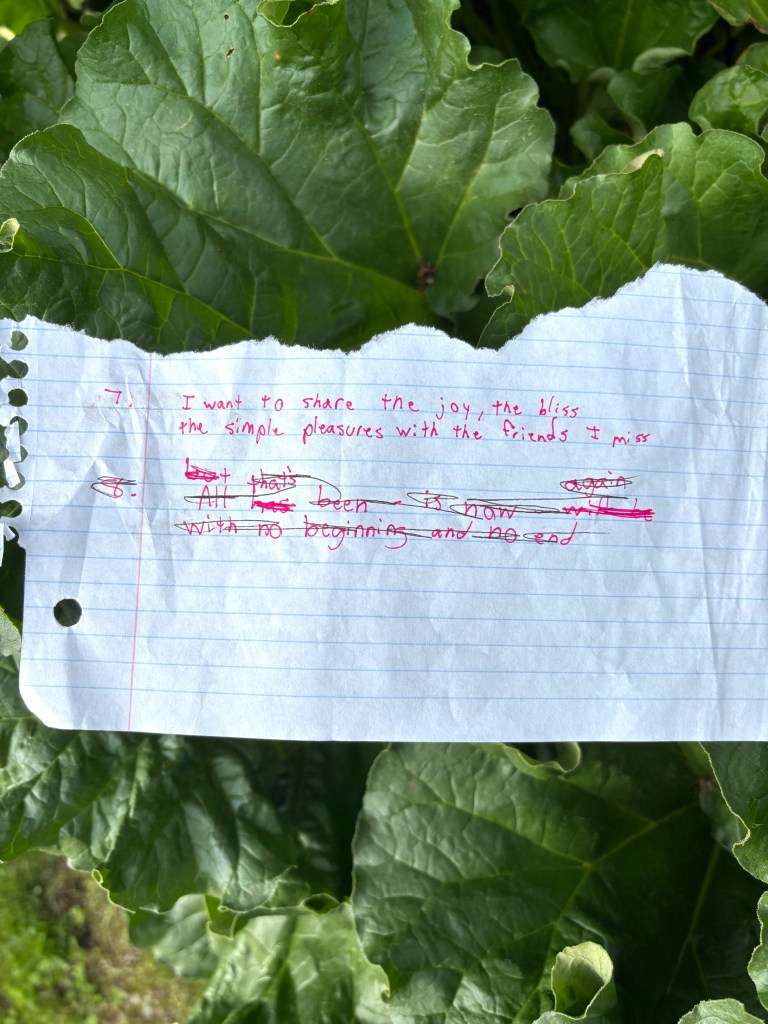 7. I want to share the joy, the bliss
the simple pleasures with the friends I miss
but that's again
8. All has been is now will be
with no beginning and no end